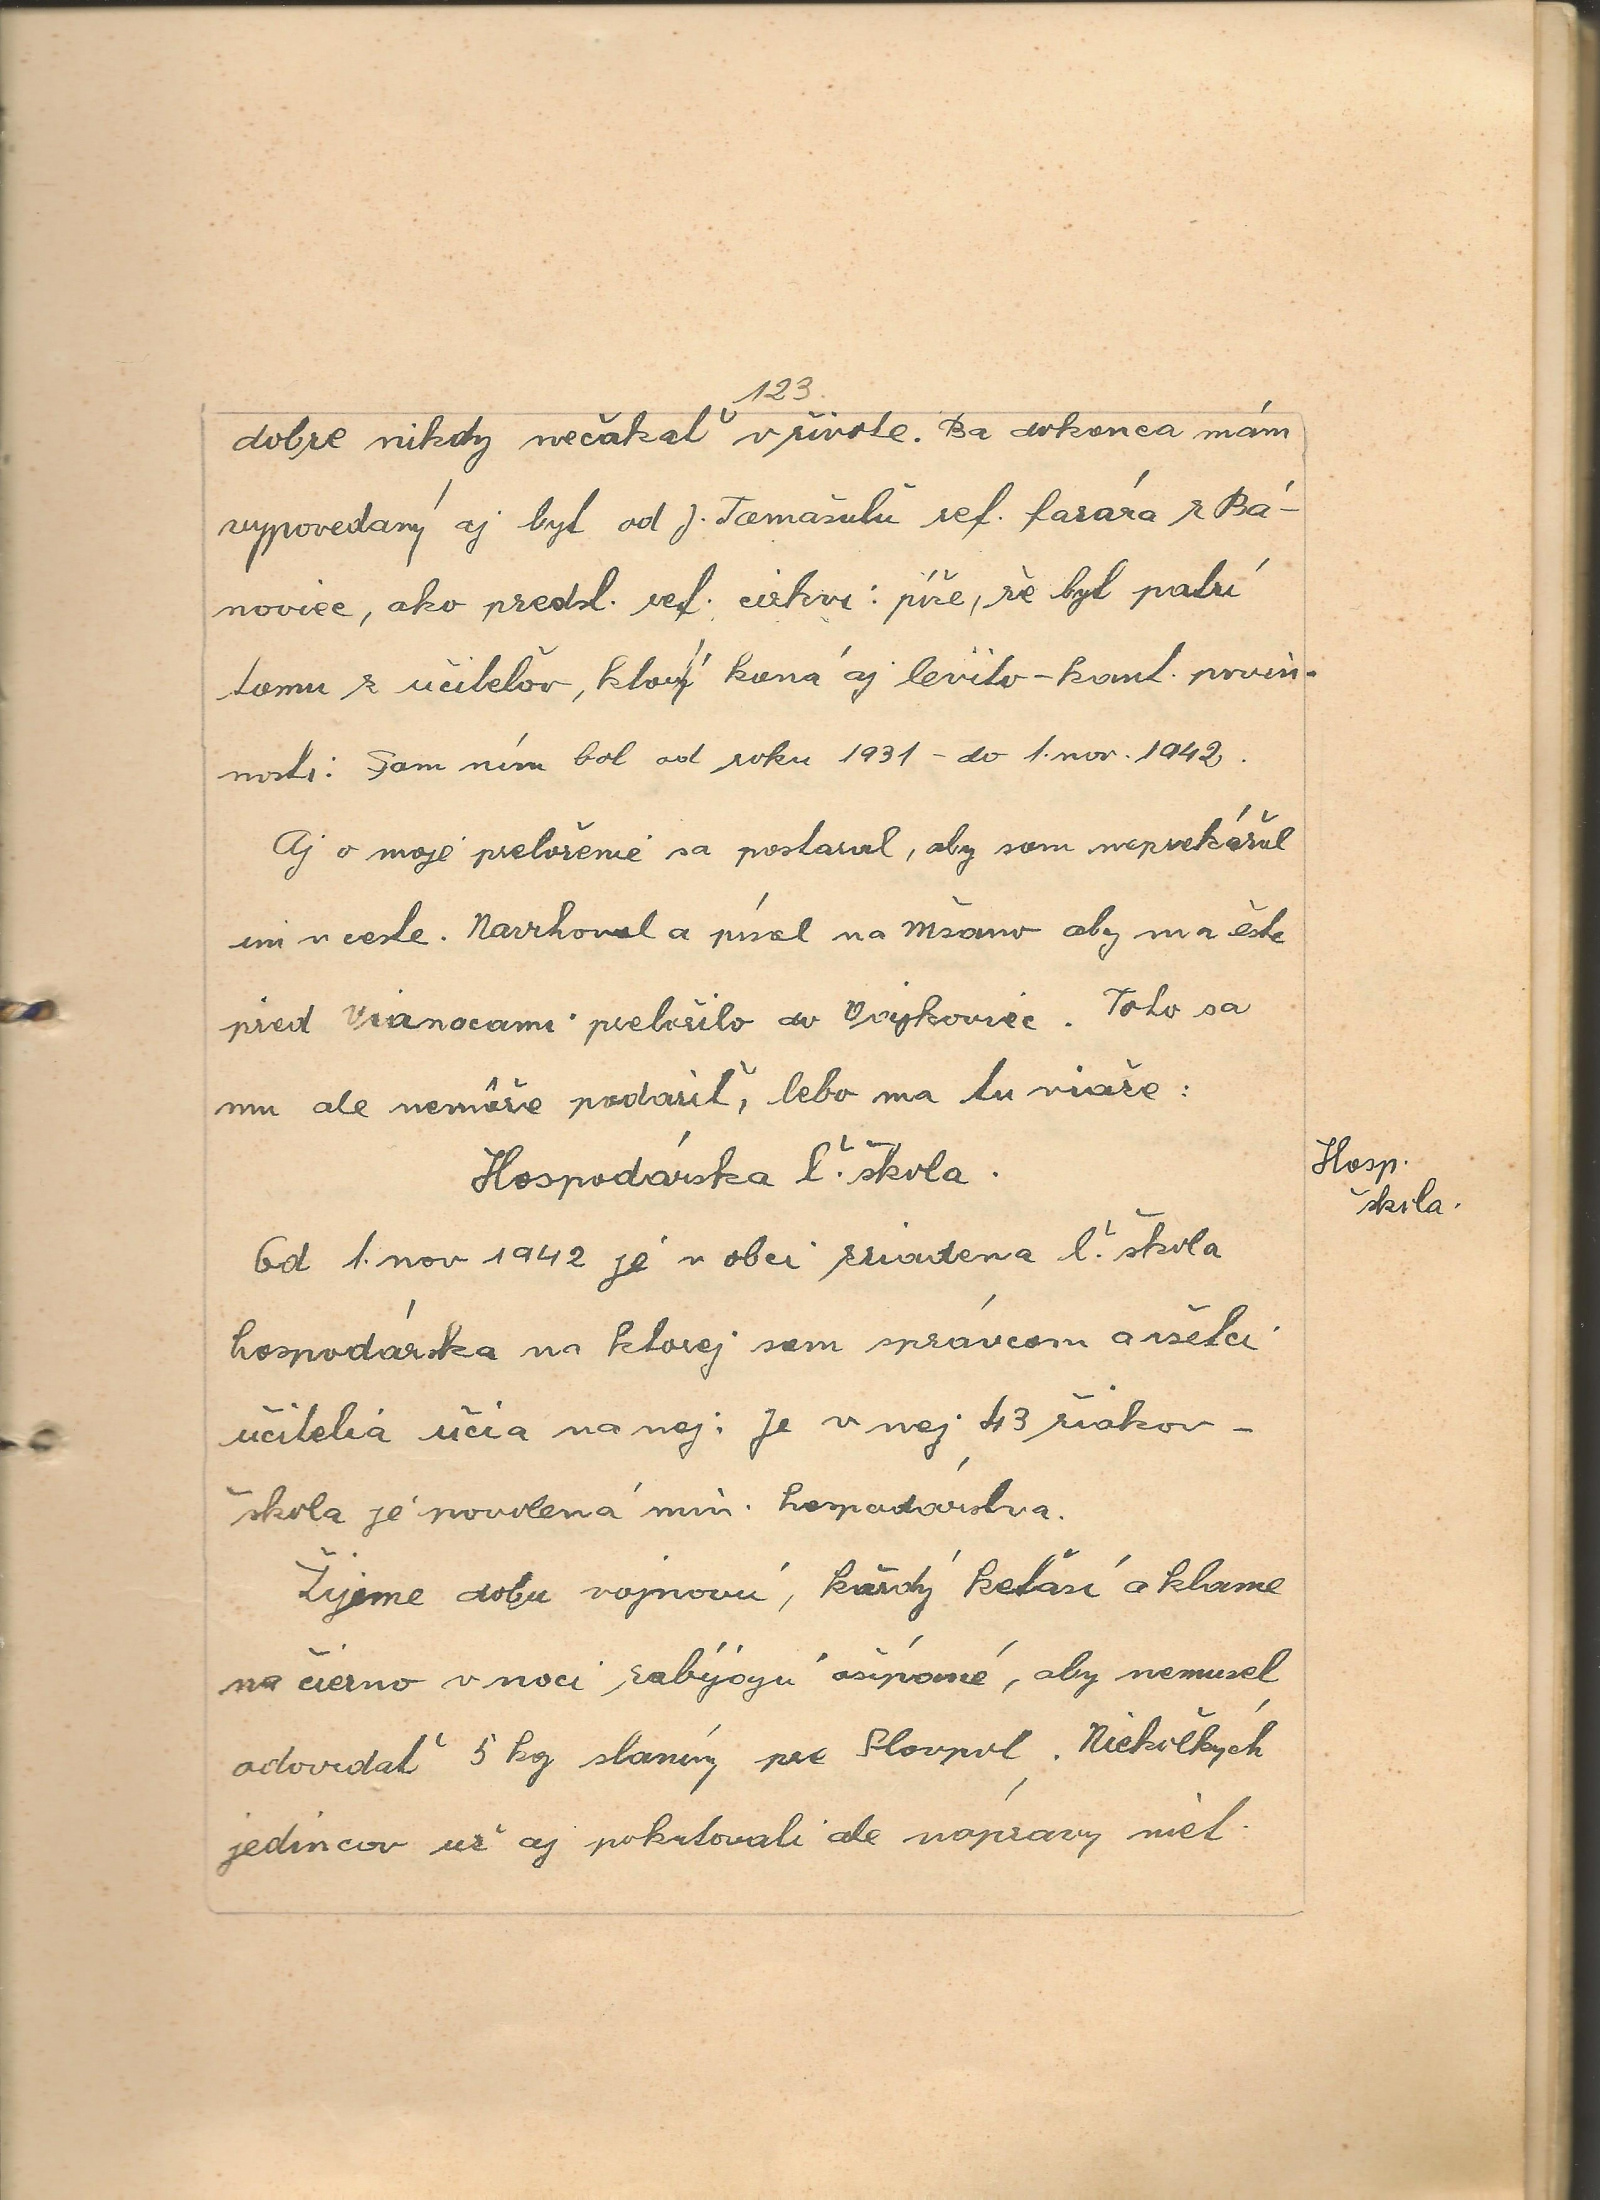 123.
dobre nikdy nečakať v živote. Ba dokonca mám
vypovedaný aj byt od J. Tomašuľu ref. farára z Bá-
noviec, ako predst. ref. cirkvi: píše, že byt patrí
tomu z učiteľov, ktorý koná aj levito-kant. povin-
nosti: Sam ním bol od roku 1931 - do 1. nov. 1942.
Aj o moje preloženie sa postaral, aby som neprekážal
im v ceste. Navrhoval a písal na Mšano aby ma ešte
pred Vianocami preložilo do Vojkoviec. Toto sa
mu ale nemôže podariť, lebo ma tu viaže:
Hospodárska ľ. škola.
Hosp.
škola.
Od 1. nov 1942 je v obci zriadena ľ. škola
hospodárska na ktorej som správcom a všetci
učitelia učia na nej: Je v nej 43 žiakov -
škola je povolená min. hospodárstva.
Žijeme dobu vojnovú, každý keťasí a klame
na čierno v noci zabýjajú ošípané, aby nemusel
odovzdať 5 kg slaniny pre Slovpol. Niekoľkých
jedincov už aj pokutovali ale nápravy niet.